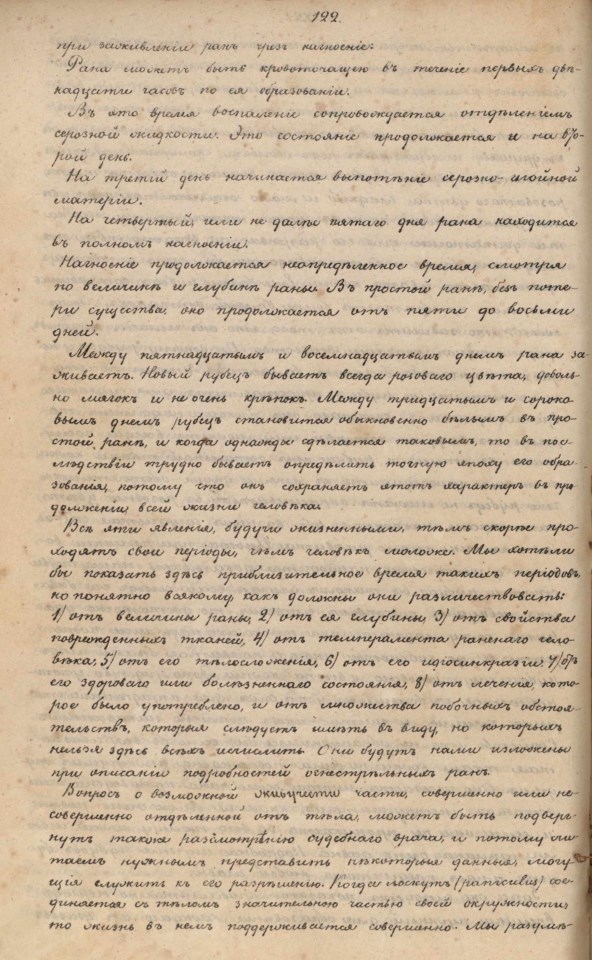 122.
при заживленіи ранъ чрезъ нагноеніе.
Рана можетъ быть кровоточащею въ теченіе первыхъ двѣ-
надцати часовъ по ея образованіи.
Въ это время воспаленіе сопровождается отдѣленіемъ
серозной жидкости. Это состояніе продолжается и на вто-
рой день.
На третій день начинается выпотѣніе серозно-гнойной
матеріи.
На четвертый, или не далѣе пятаго дня рана находится
въ полномъ нагноеніи.
Нагноеніе продолжается неопредѣленное время, смотря
по величинѣ и глубинѣ раны. Въ простой ранѣ, безъ поте-
ри существа, оно продолжается отъ пяти до восьми
дней.
Между пятнадцатымъ и восемнадцатымъ днемъ рана за-
живаетъ. Новый рубецъ бываетъ всегда розоваго цвѣта, доволь-
но мягокъ и не очень крѣпокъ. Между тридцатымъ и сороко-
вымъ днемъ рубецъ становится обыкновенно бѣлымъ въ про-
стой ранѣ, и когда однажды сдѣлается таковымъ, то въ пос-
лѣдствіи трудно бываетъ опредѣлить точную эпоху его обра-
зованія, потому что онъ сохраняетъ этотъ характеръ въ про-
долженіи всей жизни человѣка.
Всѣ эти явленія, будучи жизненными, тѣмъ скорѣе про-
ходятъ свои періоды, чѣмъ человѣкъ моложе. Мы хотѣли
бы показать здѣсь приблизительное время такихъ періодовъ,
но понятно всякому, какъ должны они различествовать:
1) отъ величины раны, 2) отъ ея глубины, 3) отъ свойства
поврежденныхъ тканей, 4) отъ темперамента раненаго чело-
вѣка, 5) отъ его тѣлосложенія, 6) отъ его идіосинкразіи. 7) отъ
его здороваго или болѣзненнаго состоянія, 8) отъ леченія, кото-
рое было употреблено, и отъ множества побочныхъ обстоя-
тельствъ, которыя слѣдуетъ имѣть въ виду, но которыхъ
нельзя здѣсь всѣхъ исчислить. Они будутъ нами изложены
при описаніи подробностей огнестрѣльныхъ ранъ.
Вопросъ о возможной живучести части, совершенно или не-
совершенно отдѣленной отъ тѣла, можетъ быть подверг-
нутъ также разсмотрѣнію судебнаго врача, и потому счи-
таемъ нужнымъ представить нѣкоторыя данныя, могу-
щія служить къ его разрѣшенію. Когда лоскутъ (panniculus) сое-
диняется съ тѣломъ значительною частью своей окружности,
то жизнь въ немъ поддерживается совершенно. Мы разумѣ-